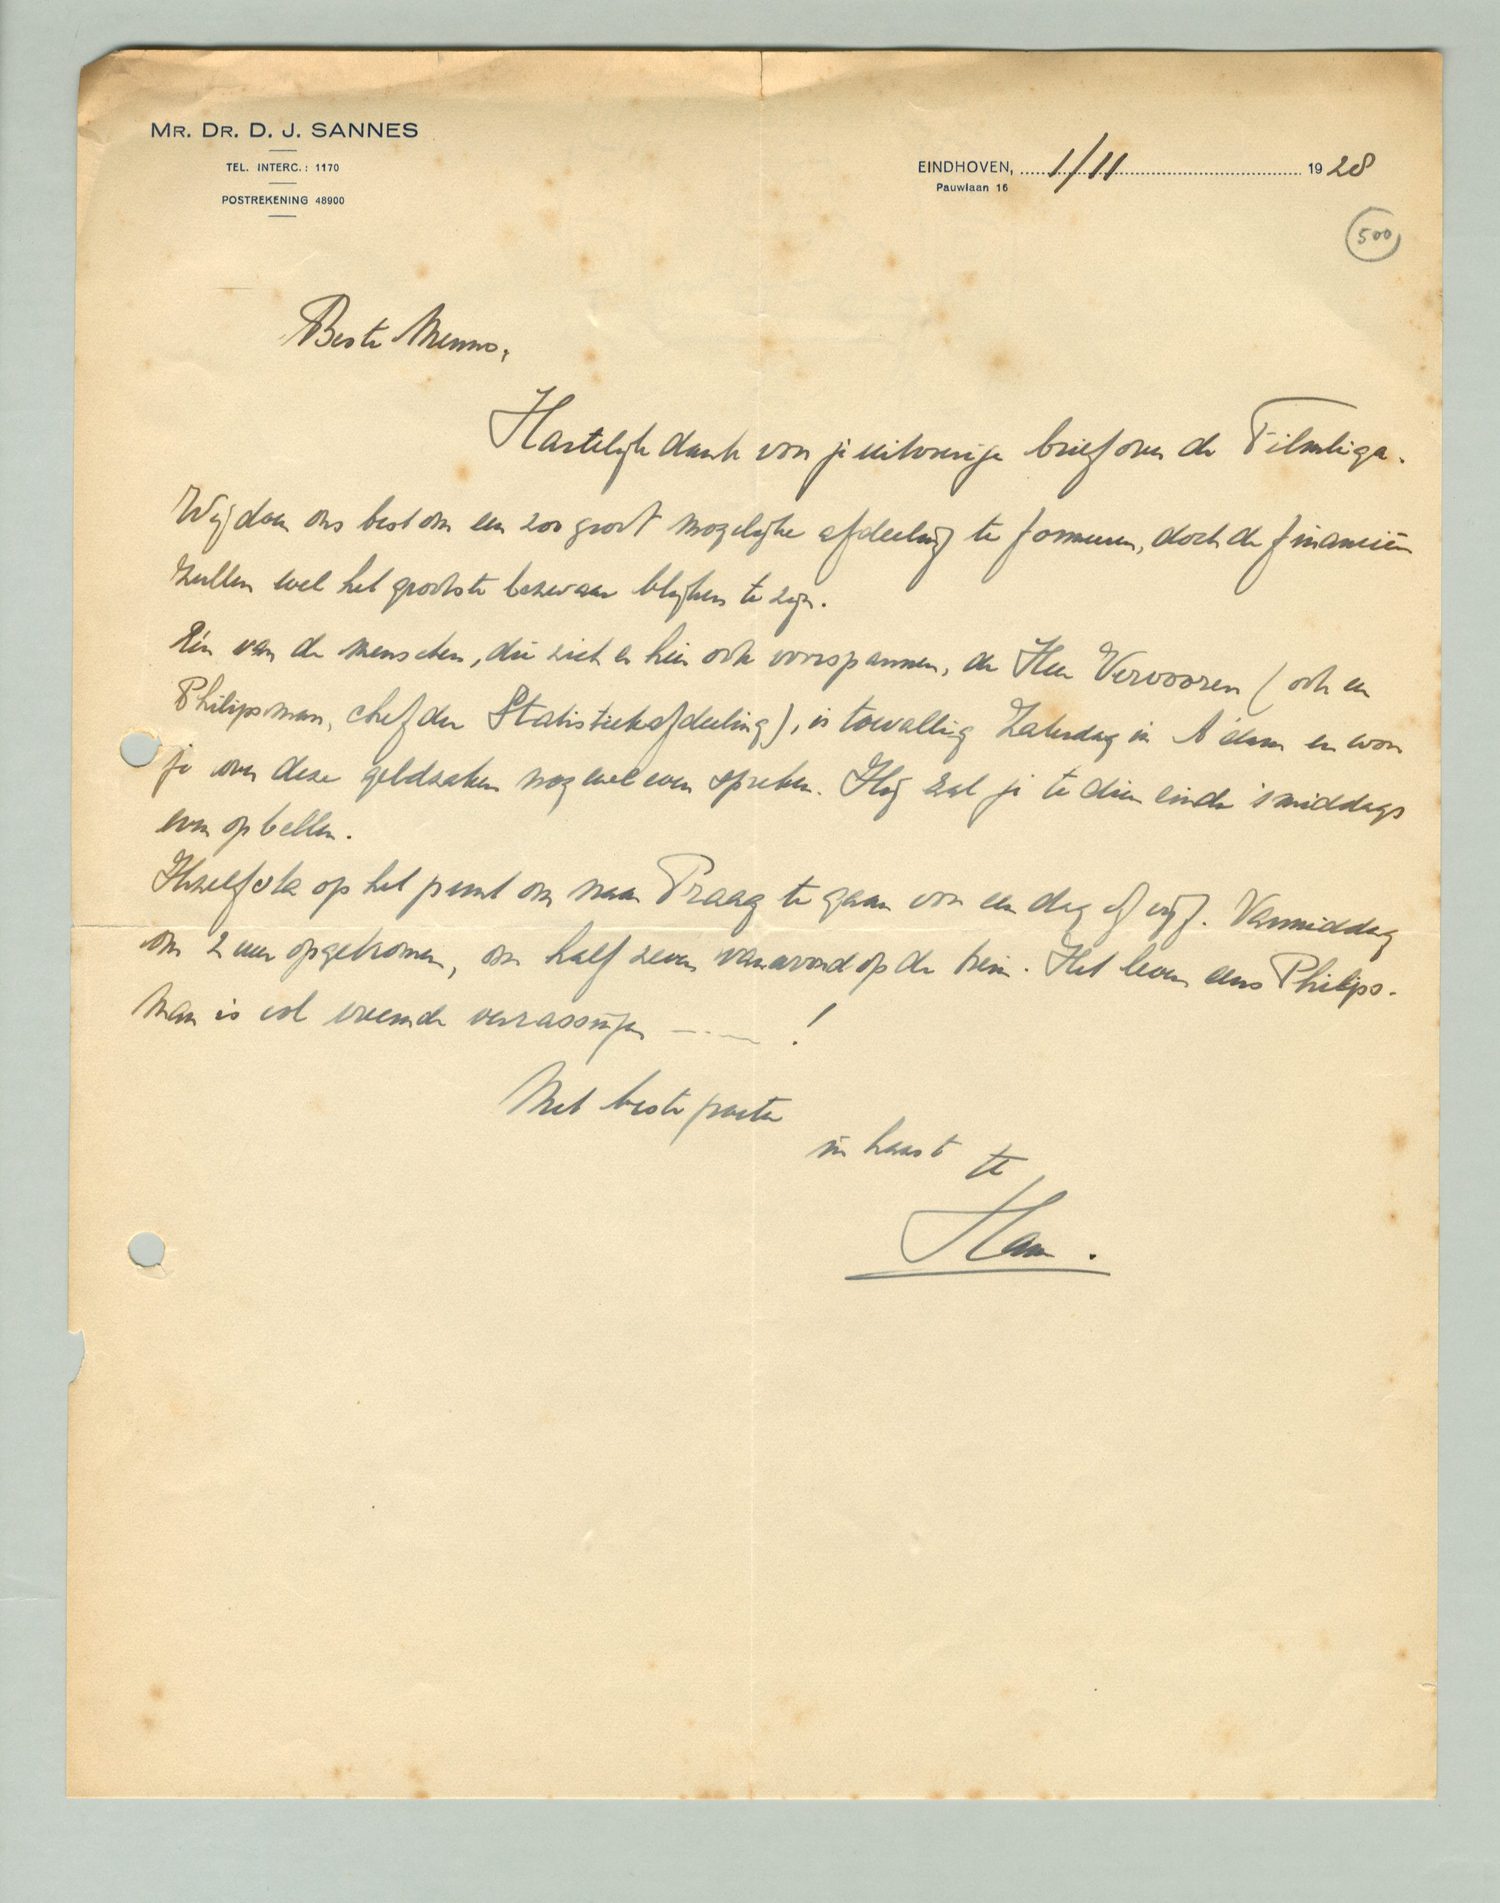 MR. DR. D. J. SANNES
TEL. INTERC.: 1170
POSTREKENING 48900
EINDHOVEN, 1/11 1928
Pauwlaan 16
500
Beste Menno,
Hartelijk dank voor je uitvoerige brief over de Filmliga.
Wij doen ons best om een zoo groot mogelijke afdeeling te formeeren, doch de financiën
zullen wel het grootste bezwaar blijken te zijn.
Eén van de menschen, die zich er hier ook voorspannen, de Heer Vervooren (ook een
Philipsman, chef der Statistiekafdeeling), is toevallig Zaterdag in A'dam en wou
je over deze geldzaken nog wel even spreken. Hij zal je te dien einde 's middags
even opbellen.
Ikzelf sta op het punt om naar Praag te gaan voor een dag of vijf. Vanmiddag
om 2 uur opgekomen, om half zeven vanavond op de trein. Het leven eens Philips-
man is vol vreemde verrassingen — . — . — !
Met beste groeten
in haast
Han.